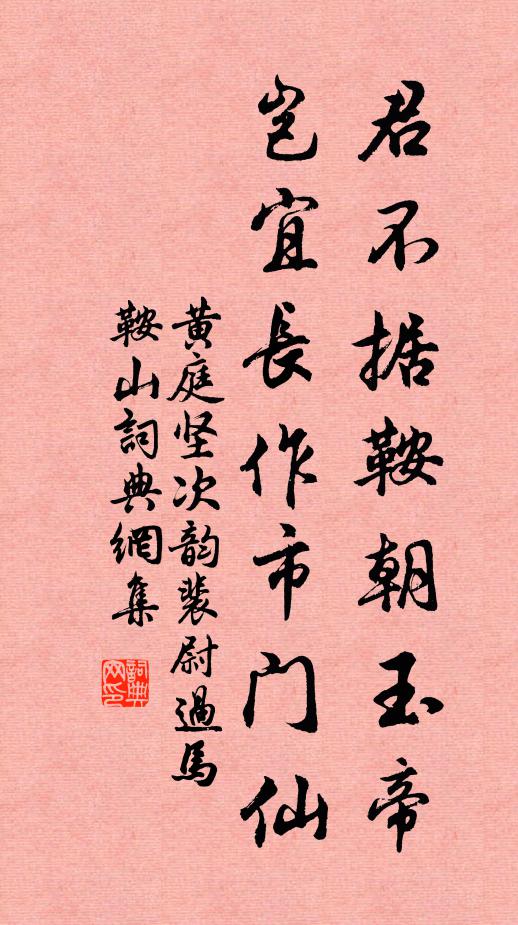 君不据鞍朝玉帝
岂宜長作市门仙
黄庭坚次韵裴尉過馬
鞍山詞典網集
詞典
网印